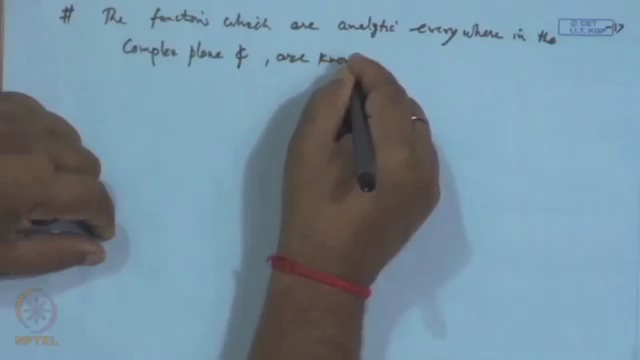 # The functions which are analytic everywhere in the
Complex plane ₵, are know
© CET
I.I.T. KGP
NPTEL